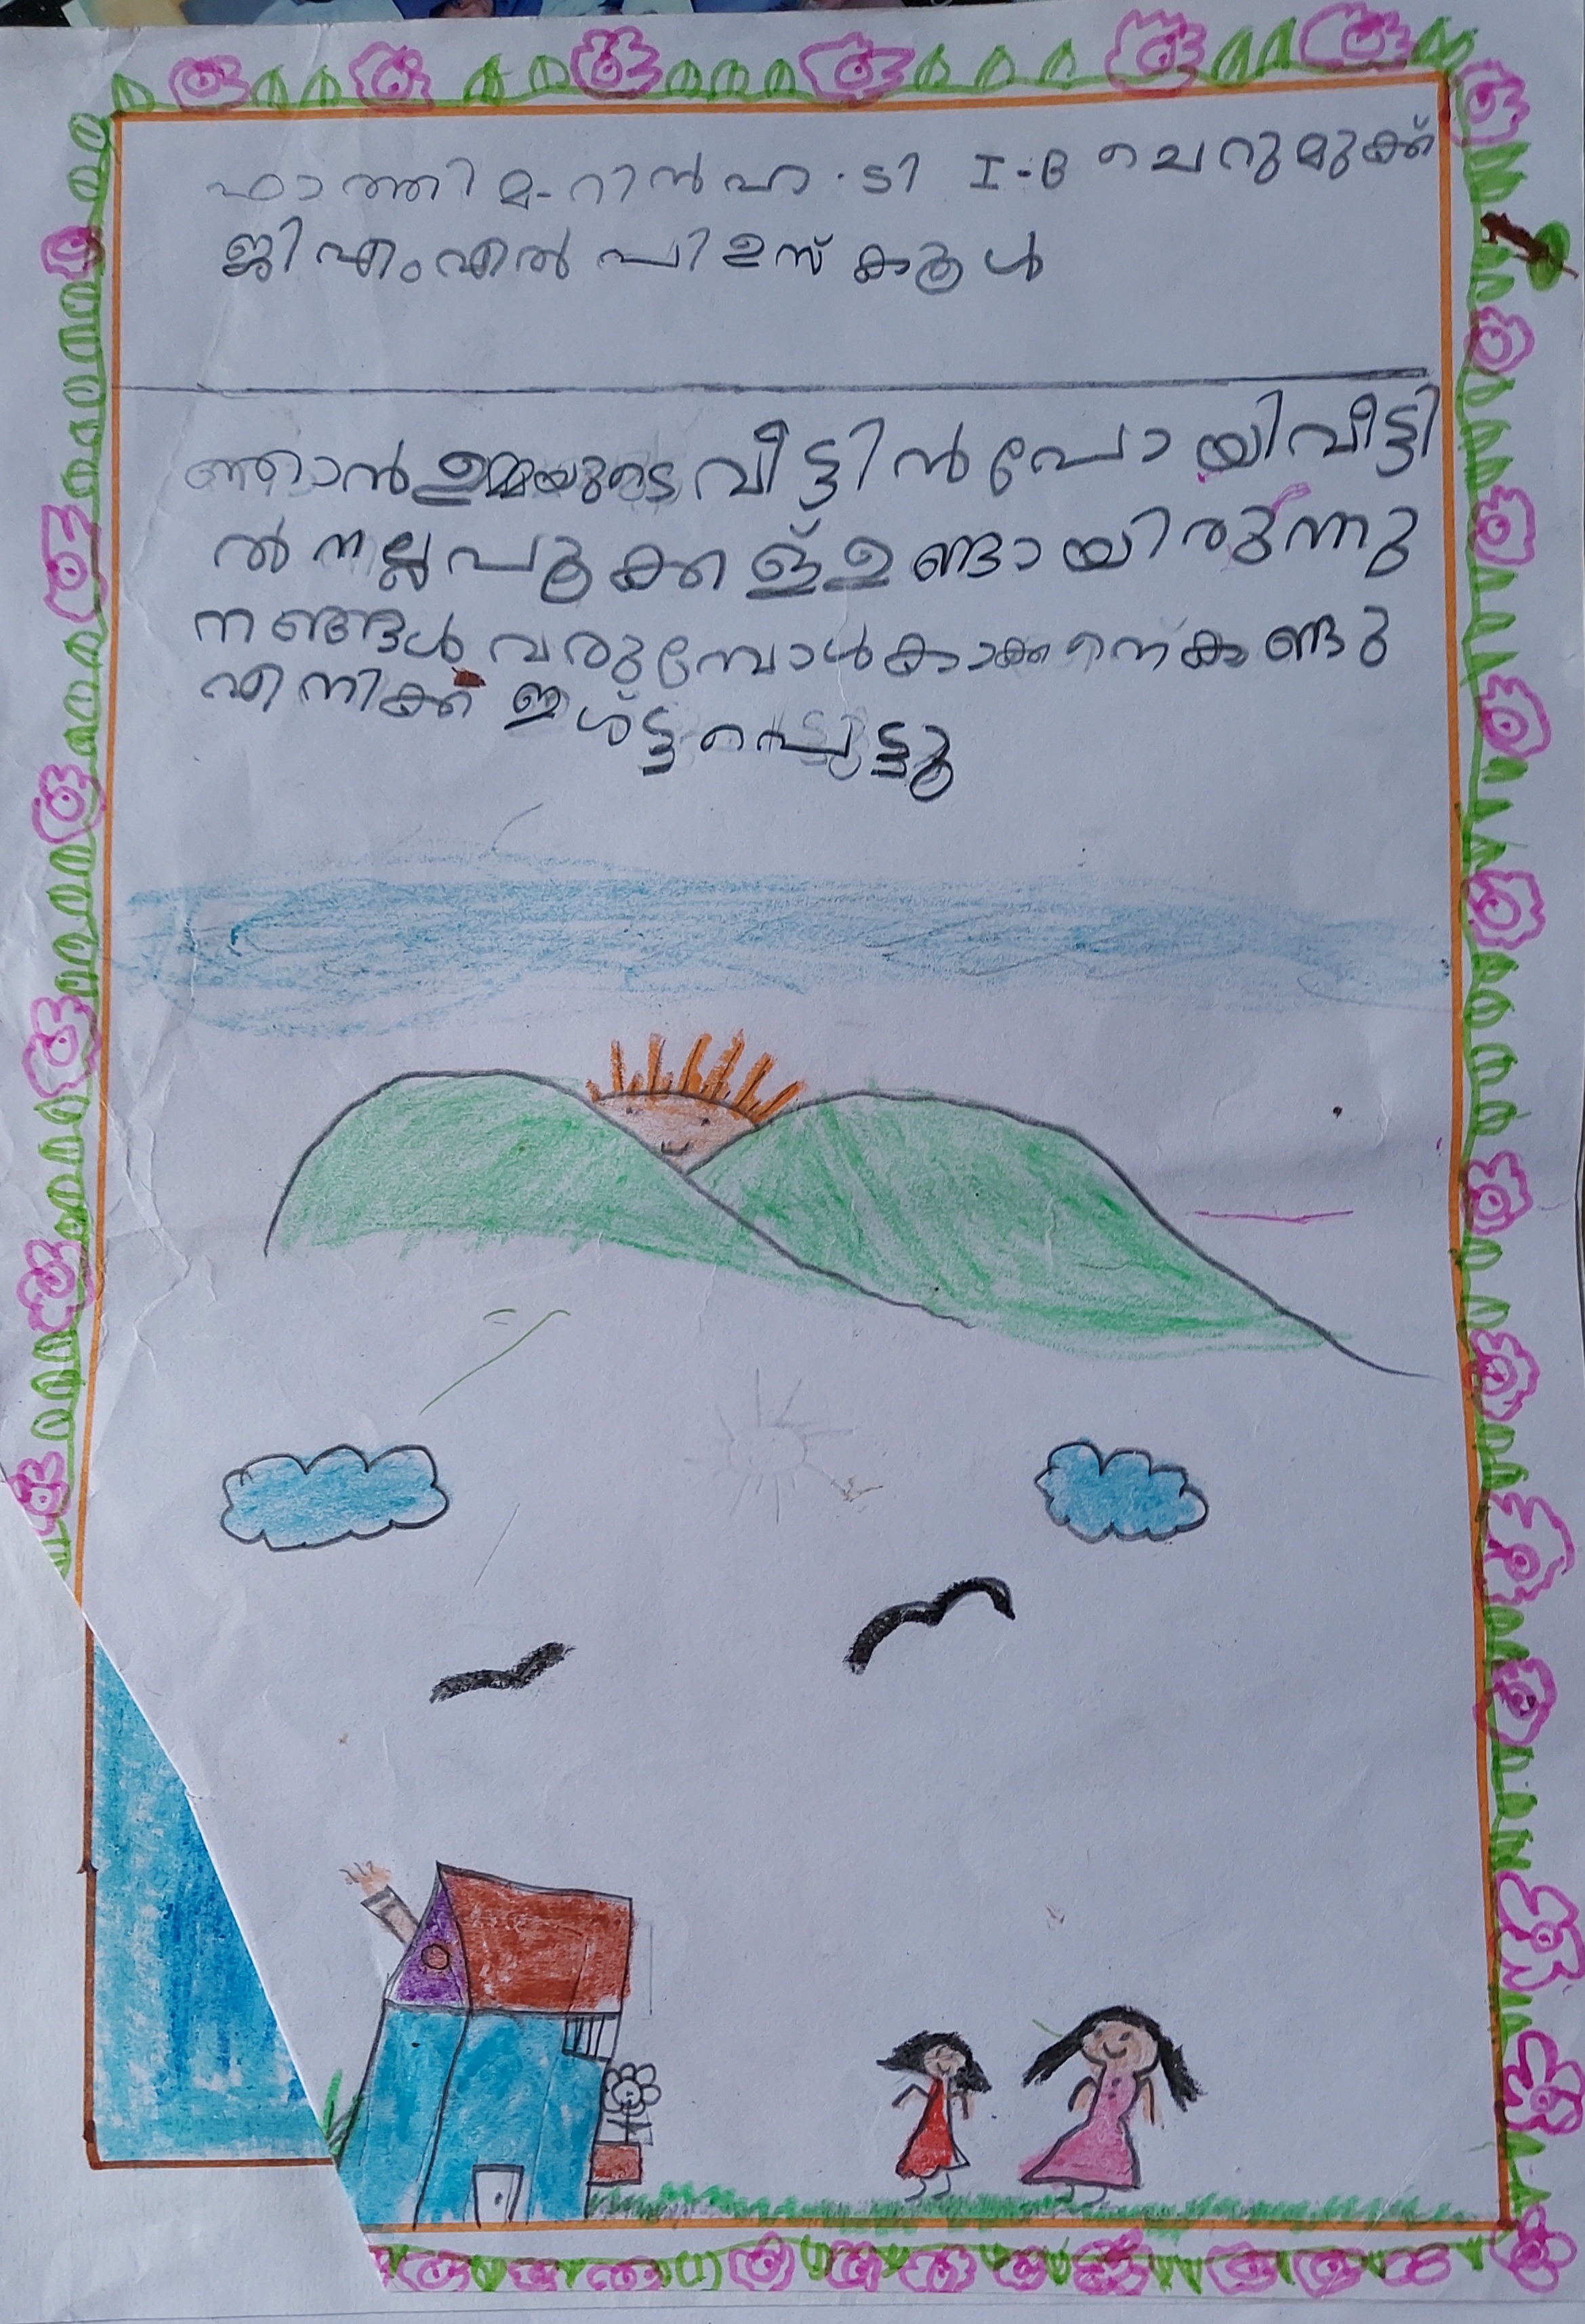 ഫാത്തിമ-റിൻഹ.ടി I-B ചെറുമുക്ക്
ജിഎംഎൽപിഉസ്കൂൾ
ഞാൻഉമ്മയുടെവീട്ടിൻപോയിവീട്ടി
ൽനല്ലപൂക്കള്ഉണ്ടായിരുന്നു
നങ്ങൾവരുമ്പോൾകാക്കനെന്കണ്ടു
എനിക്ക്ഇശ്ട്ടപെട്ടൂ